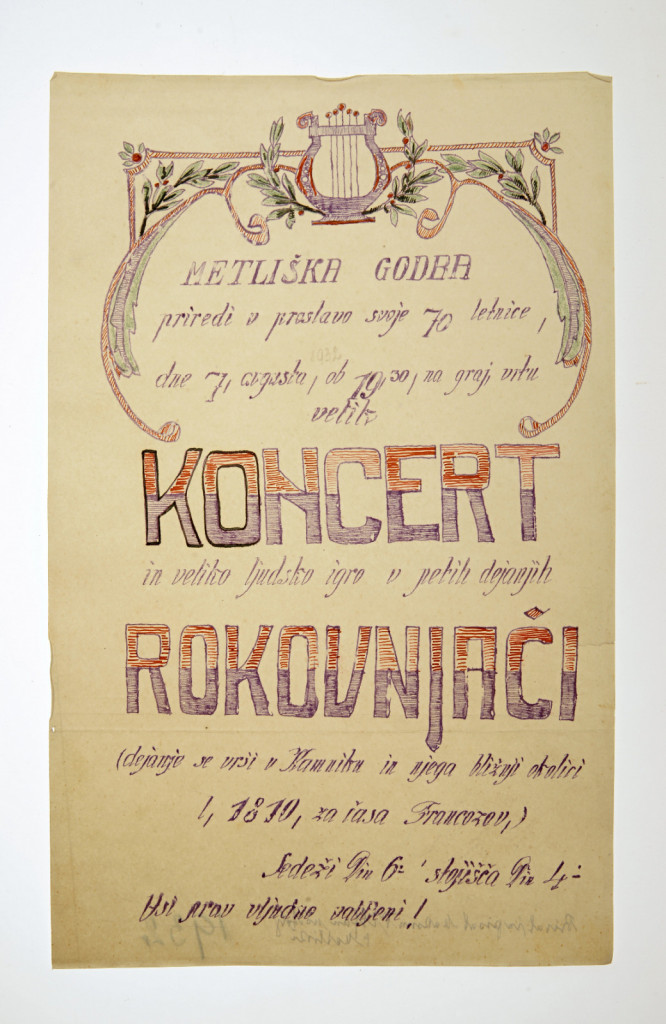 METLIŠKA GODBA
priredi v proslavo svoje 70 letnice,
dne 7, avgusta, ob 19,30, na graj, vrtu
velik
KONCERT
in veliko ljudsko igro v petih dejanjih
ROKOVNJAČI
(dejanje se vrši v Kamniku in njega bližnji okolici
l, 1810, za časa Francozov,)
Sedeži Din 6- stojišča Din 4-
Vsi prav vljudno vabljeni!